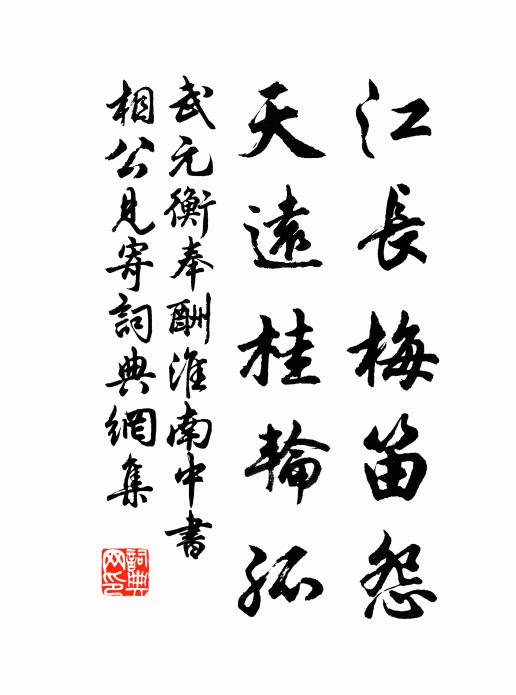 江長梅笛怨
天遠桂輪孤
武元衡奉酬淮南中書
相公見寄詞典網集
詞典网印